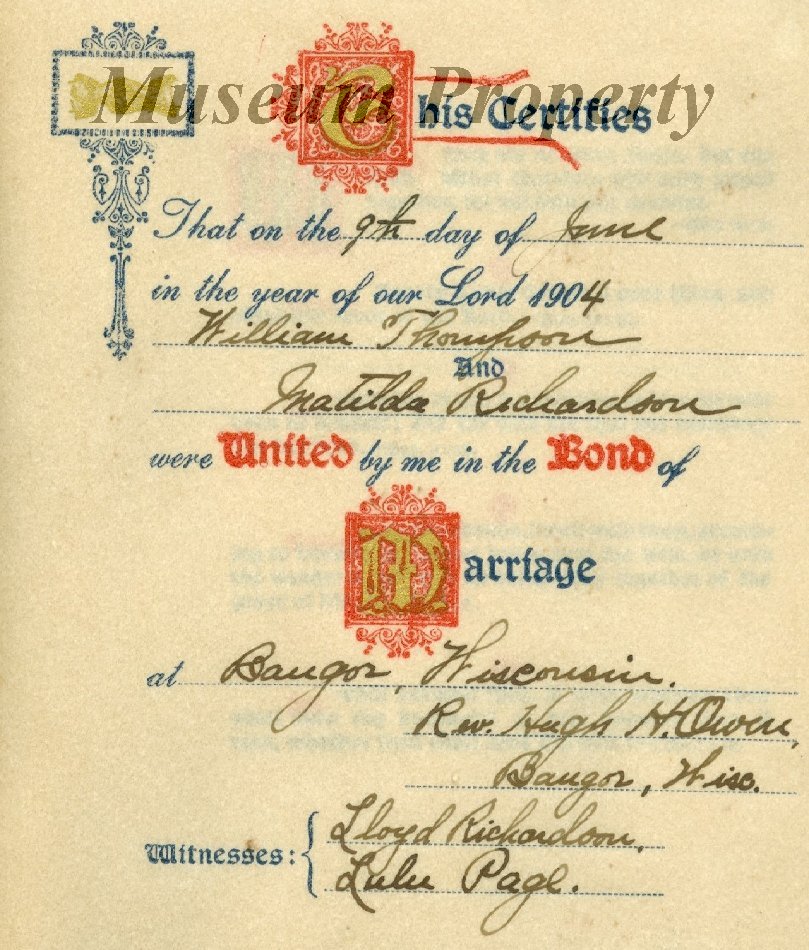 Museum Property
This Certifies
That on the 9th day of June
in the year of our Lord 1904
William Thompson
And
Matilda Richardson
were United by me in the Bond of
Marriage
at Bangor, Wisconsin.
Rev. Hugh H. Owen,
Bangor, Wisc.
Lloyd Richardson,
Witnesses:
Lulu Page.